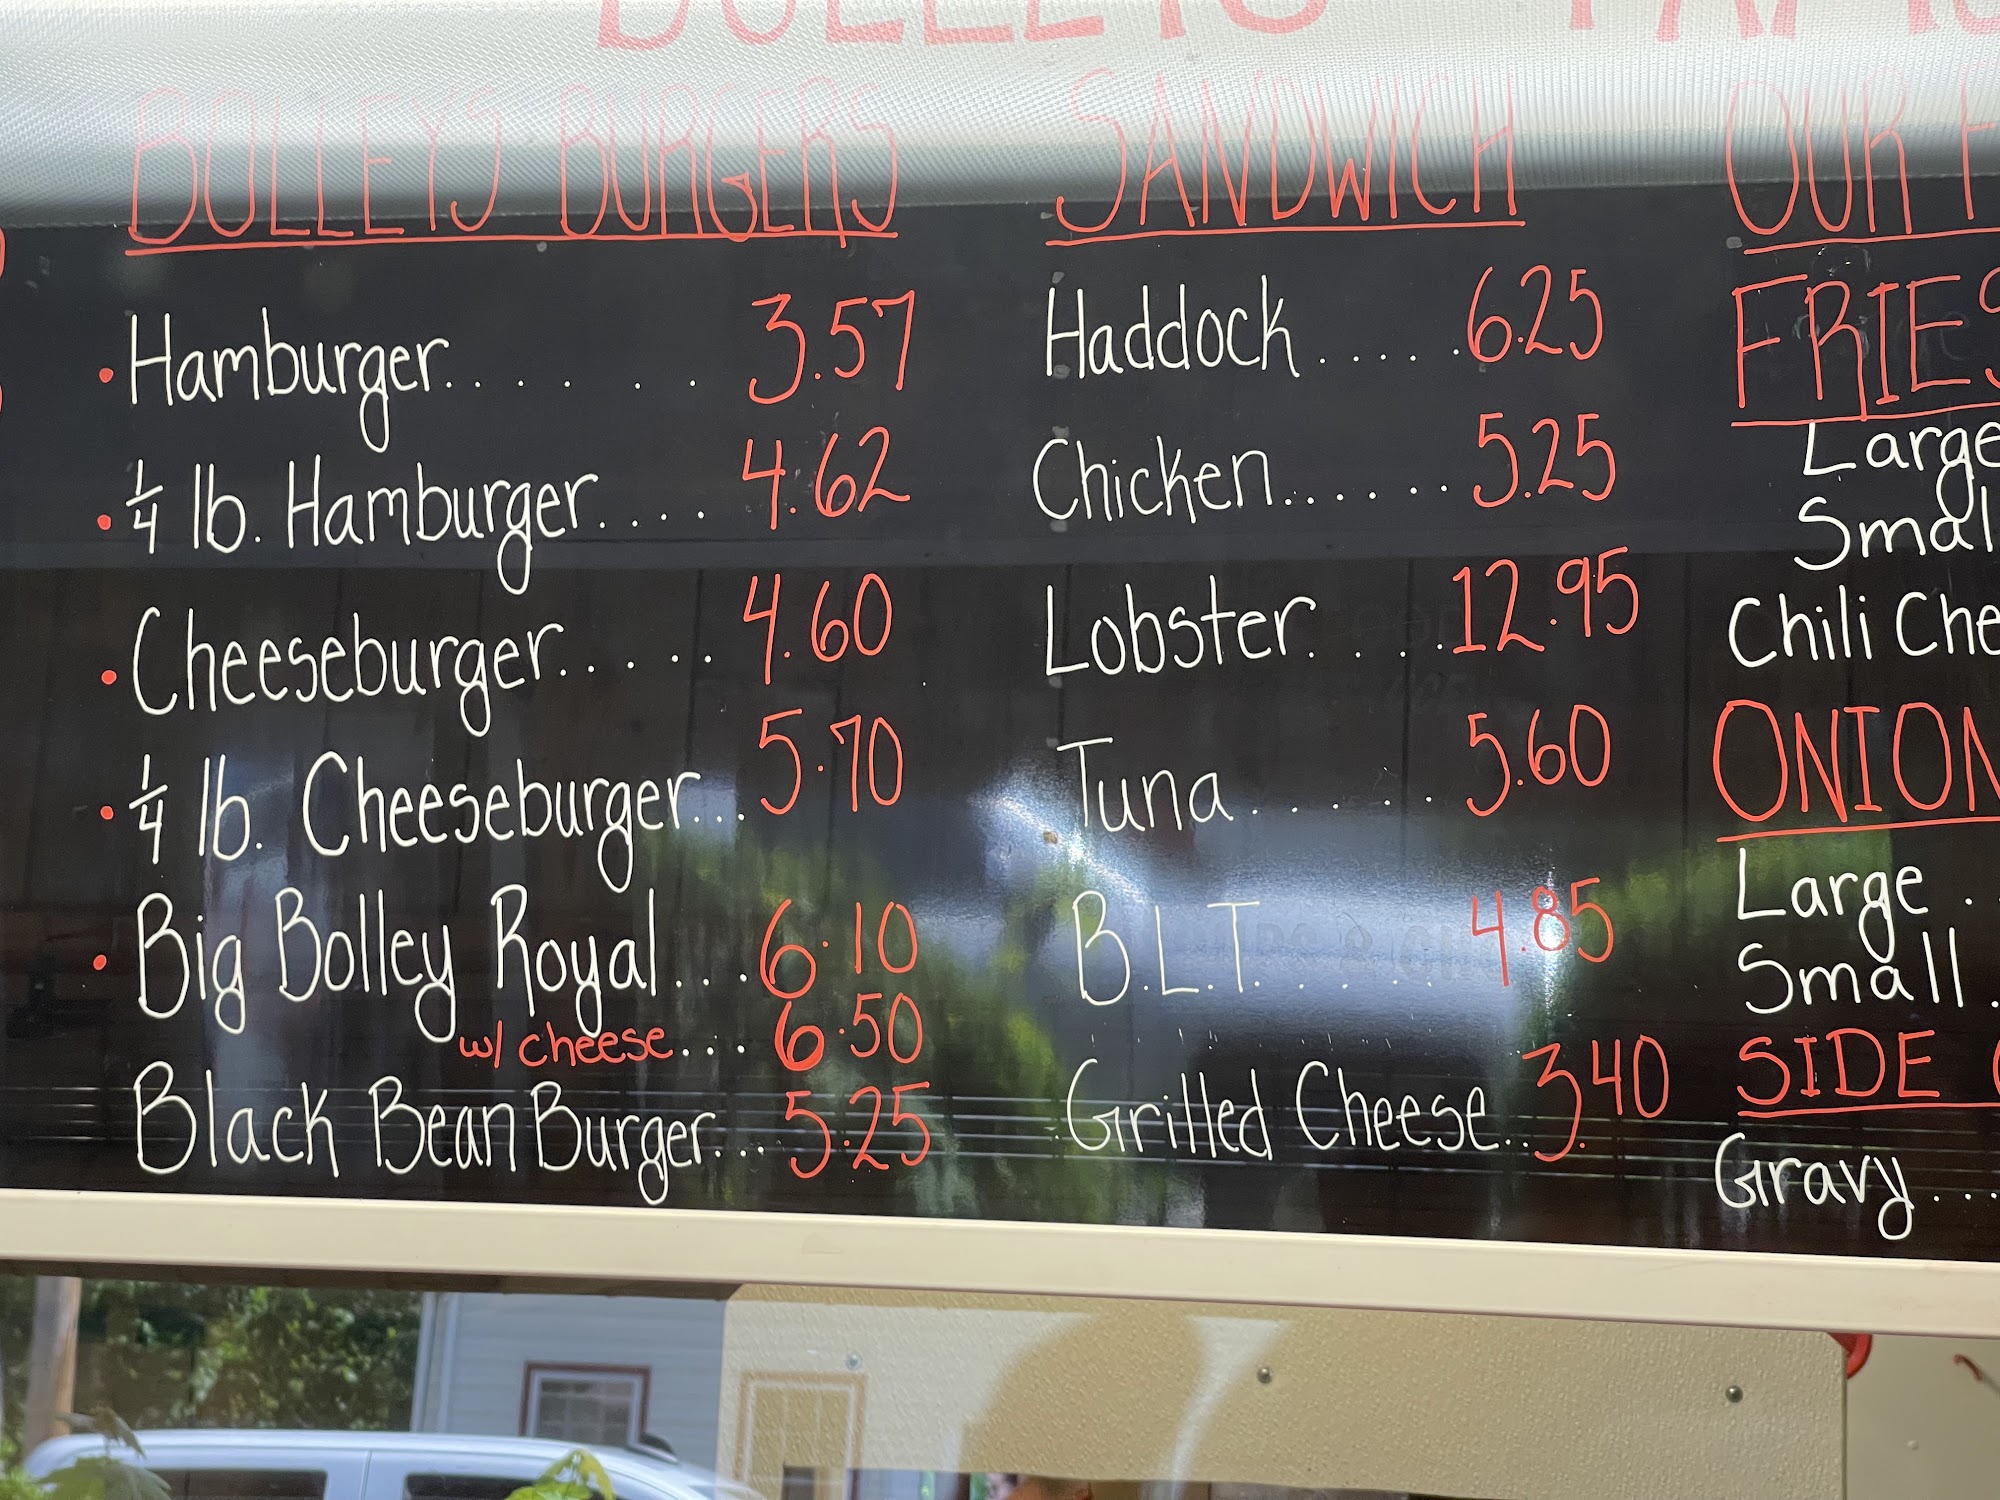 BOLLEYS
BOLLEYS BURGERS
• Hamburger..... . . 3.57
• 1/4 lb. Hamburger.... 4.62
• Cheeseburger..... 4.60
• 1/4 lb. Cheeseburger... 5.70
• Big Bolley Royal... 6.10
w/ cheese... 6.50
Black Bean Burger... 5.25
SANDWICH
Haddock..... 6.25
Chicken...... 5.25
Lobster..... 12.95
Tuna...... 5.60
B.L.T...... 4.85
Grilled Cheese.. 3.40
OUR
FRIES
Large
Small
Chili Che
ONION
Large .
Small .
SIDE
Gravy....